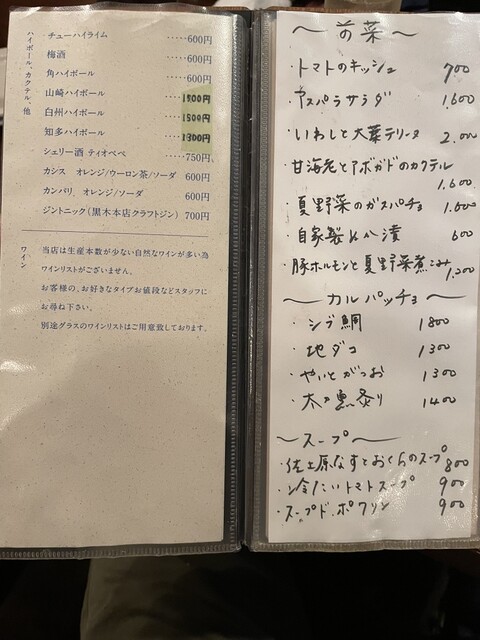 ハイボール、カクテル、他
チューハイライム ‥‥‥600円
梅酒 ‥‥‥600円
角ハイボール ‥‥‥600円
山崎ハイボール 1500円
白州ハイボール ‥‥‥1500円
知多ハイボール ‥‥‥1300円
シェリー酒 ティオペペ ‥‥‥750円
カシス オレンジ/ウーロン茶/ソーダ 600円
カンパリ オレンジ/ソーダ 600円
ジントニック(黒木本店クラフトジン) 700円
ワイン
当店は生産本数が少ない自然なワインが多い為
ワインリストがございません。
お客様の、お好きなタイプお値段などスタッフに
お尋ね下さい。
別途グラスのワインリストはご用意致しております。
〜前菜〜
・トマトのキッシュ 700
・アスパラサラダ 1.600
・いわしと大葉テリーヌ 2.000
・甘海老とアボガドのカクテル
1.600
・夏野菜のガスパチョ 1.600
・自家製ぬか漬 600
・豚ホルモンと夏野菜煮こみ
1,200
〜カルパッチョ〜
・シブ鯛 1800
・地ダコ 1300
・やいとがつお 1300
・太刀魚炙り 1400
〜スープ〜
・佐土原なすとおくらのスープ 800
・冷たいトマトスープ 900
・スープドポワソン 900